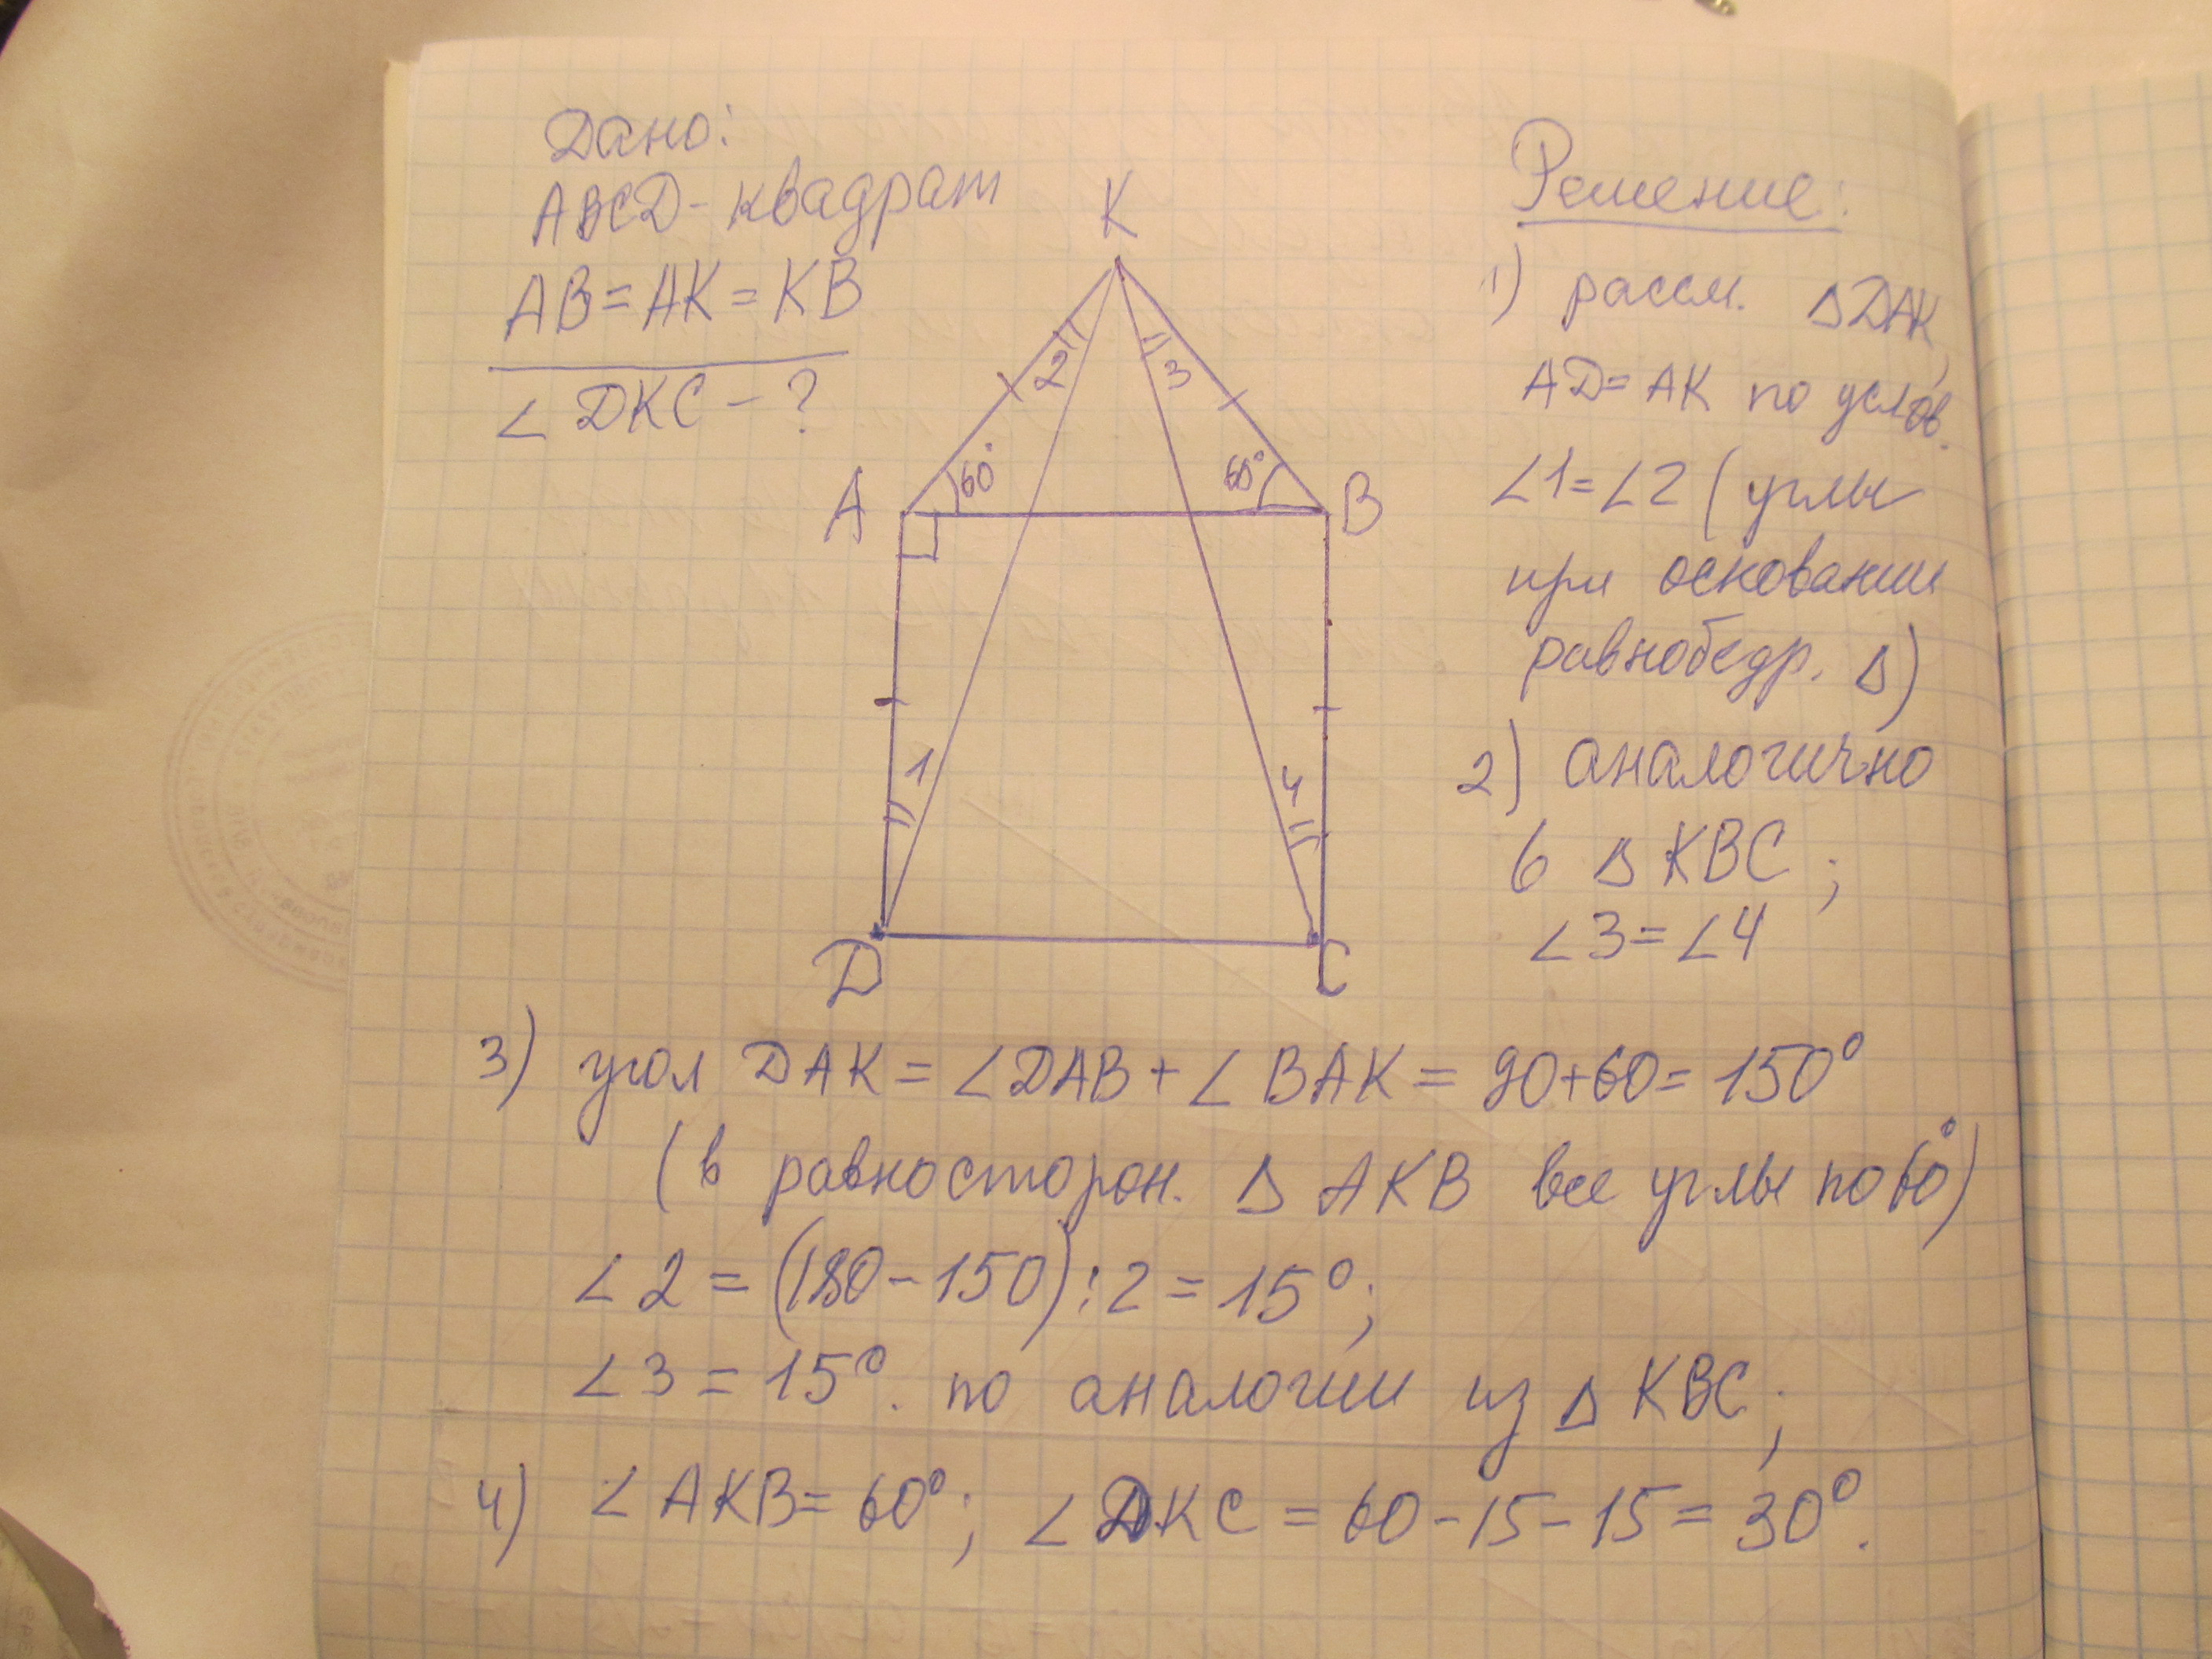 Дано:
ABCD - квадрат
AB = AK = KB
∠DKC - ?
K
2
3
60°
60°
A
B
1
4
D
C
Решение:
1) рассм. ΔDAK,
AD = AK по услов.
∠1 = ∠2 (углы
при основании
равнобедр. Δ)
2) аналогично
в Δ KBC ;
∠3 = ∠4
3) угол DAK = ∠DAB + ∠BAK = 90+60 = 150°
(в равносторон. Δ AKB все углы по 60°)
∠2 = (180 - 150) : 2 = 15°;
∠3 = 15°. по аналогии из Δ KBC;
4) ∠AKB = 60°; ∠DKC = 60 - 15 - 15 = 30°.